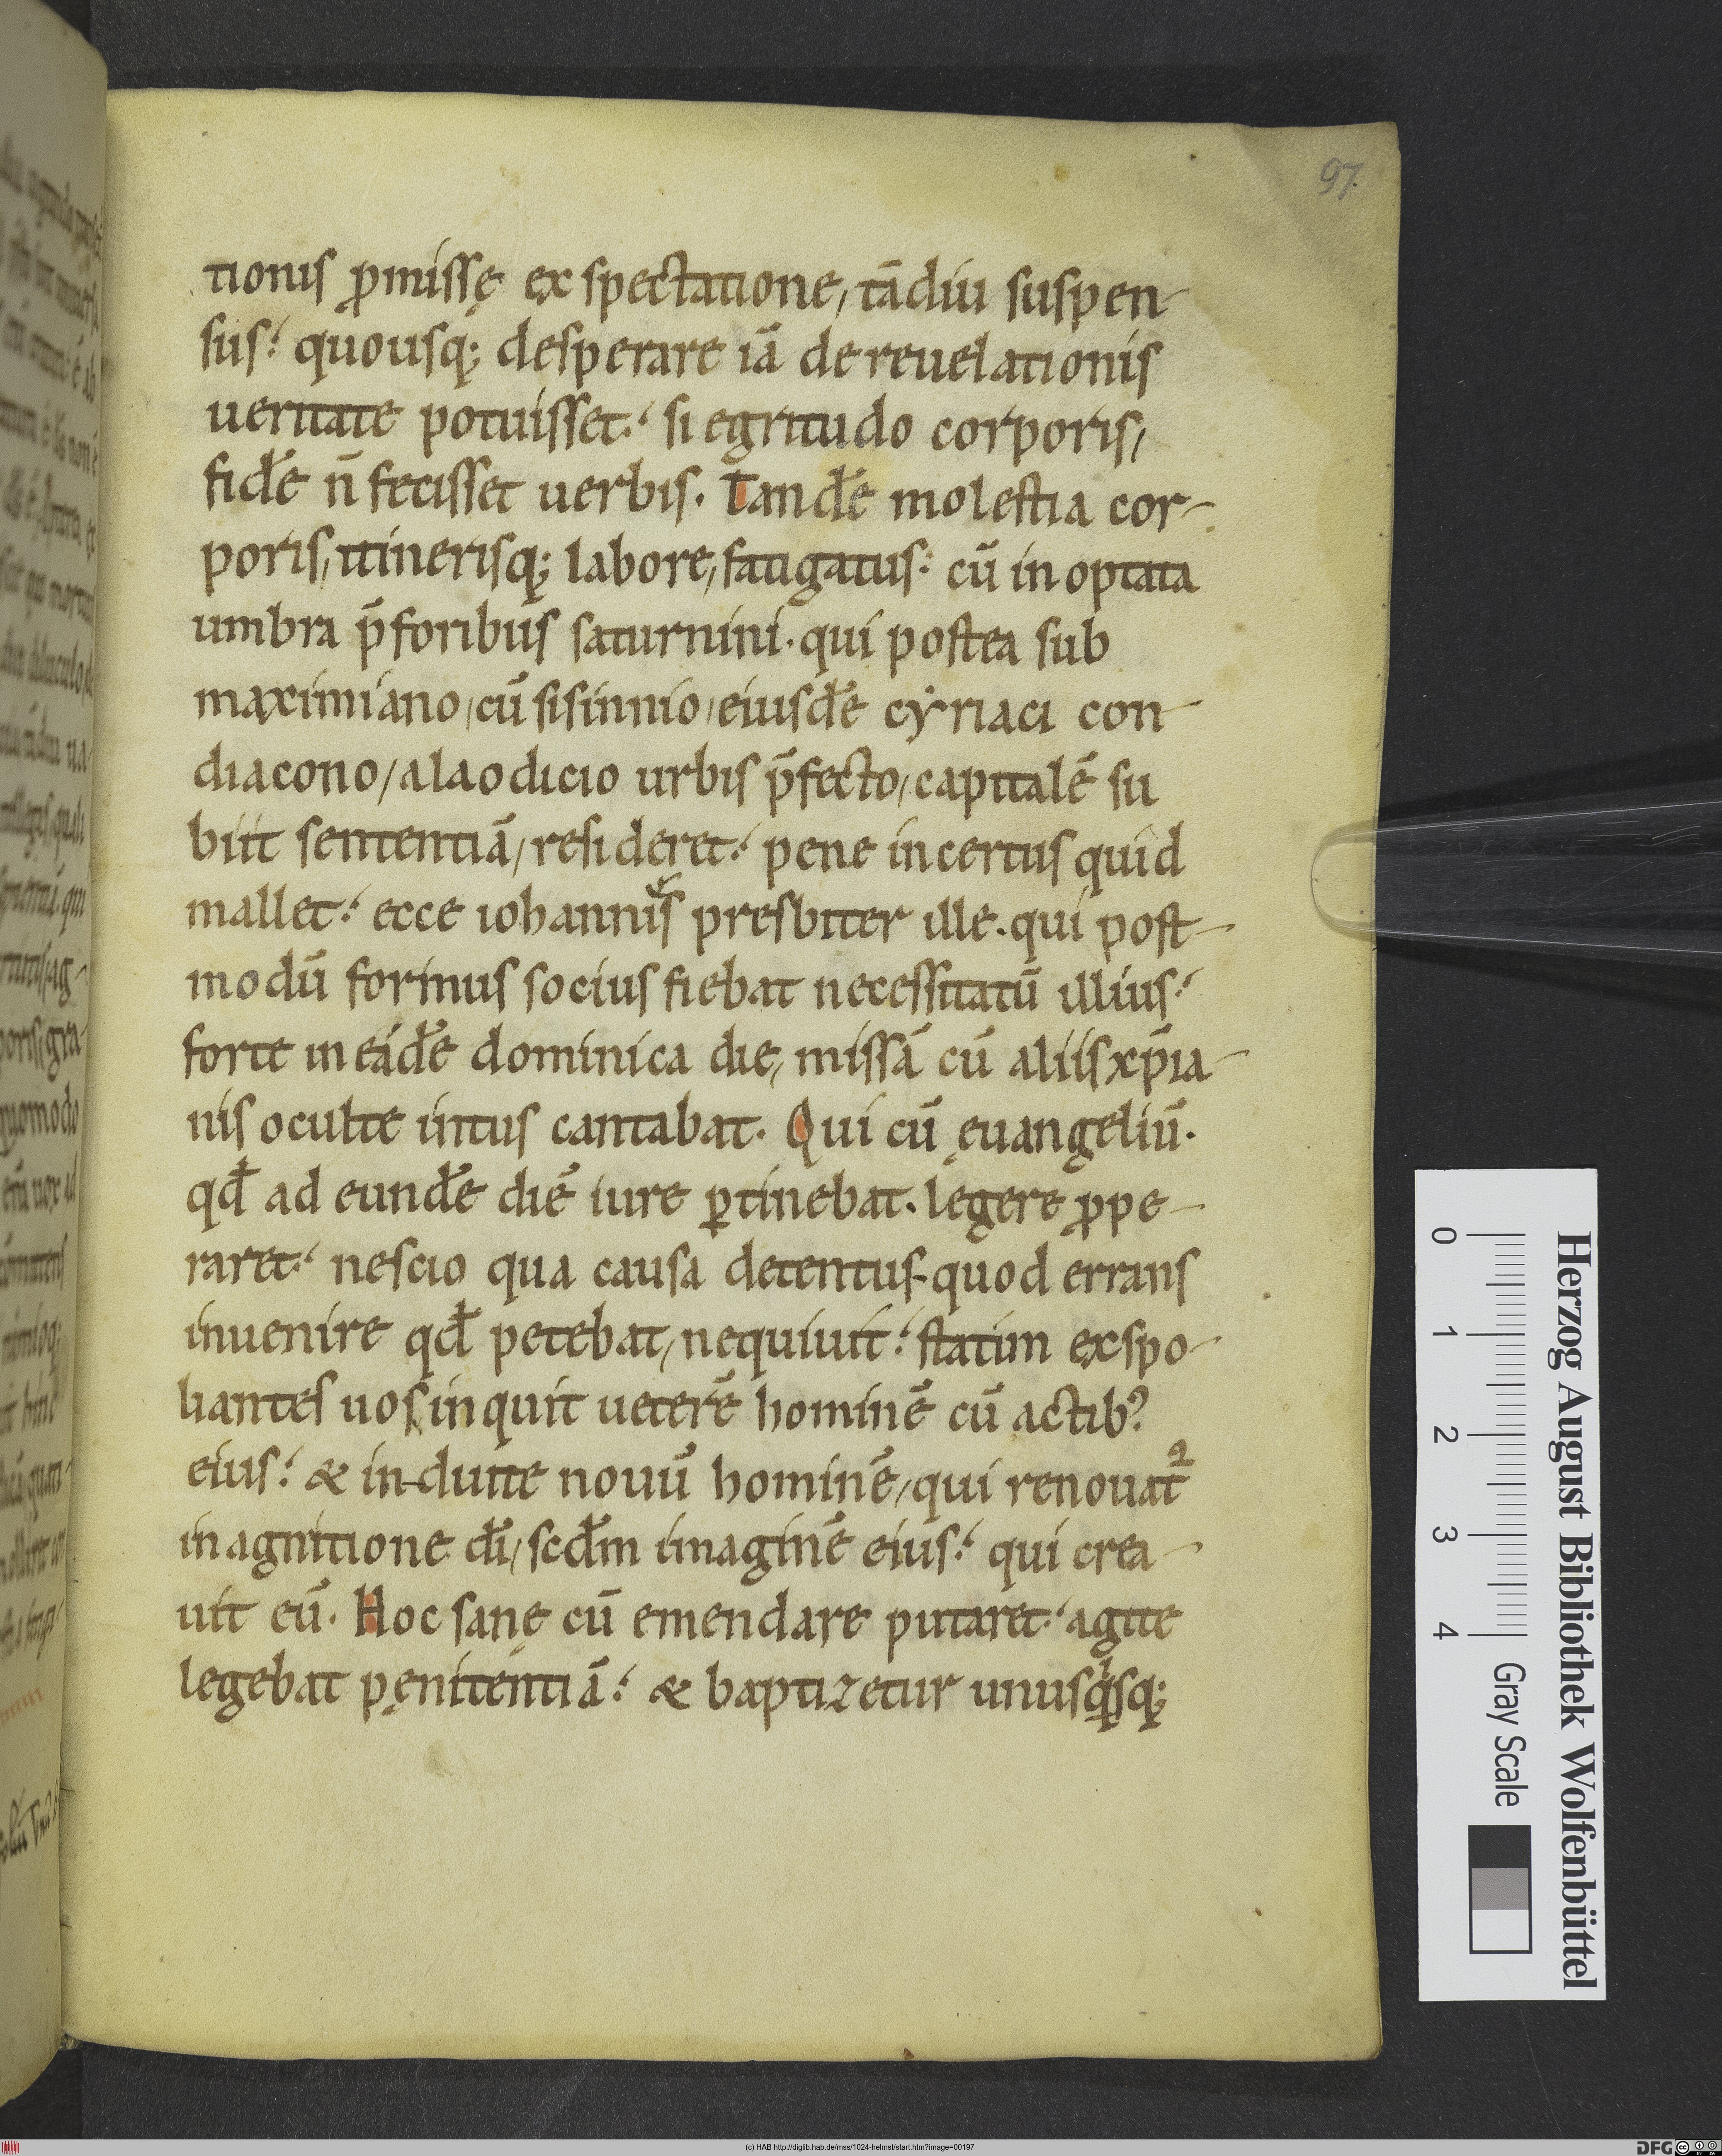 97.
tionis ꝓmissę exspectatione, tādiu suspen-
sus. quousq; desperare iā de reuelationis
ueritate potuisset. si egritudo corporis,
fidē n̄ fecisset uerbis. Tandē molestia cor-
poris, itinerisq; labore, fatigatus. cū in optata
umbra p̄foribus saturnini. qui postea sub
maximiano, cū sisinnio, eiusdē cẏriaci con-
diacono, a laodicio urbis p̄fecto, capitalē su
biit sententiā, resideret. pene incertus quid
mallet. ecce iohannis presbiter ille. qui post-
modū formus socius fiebat necessitatū illius.
forte in eādē dominica die, missā cū aliis xp̄ia-
nis oculte intus cantabat. Qui cū ęuangeliū.
qđ ad eundē diē iure ꝑtinebat. legere ꝓpe-
raret. nescio qua causa detentus. quod errans
inuenire qđ petebat, nequiuit. statim exspo-
liantes uos inquit ueterē hominē cū actib?
eius. & in-duite nouū hominē, qui renouat᷑
in agnitione dī, scđm imaginē eius. qui crea-
uit eū. Hoc sanę cū emendare putaret. agite
legebat pęnitentiā. & baptizetur unusqisq;
Herzog August Bibliothek Wolfenbüttel
0 1 2 3 4 Gray Scale
(c) HAB http://diglib.hab.de/mss/1024-helmst/start.htm?image=00197
DFG